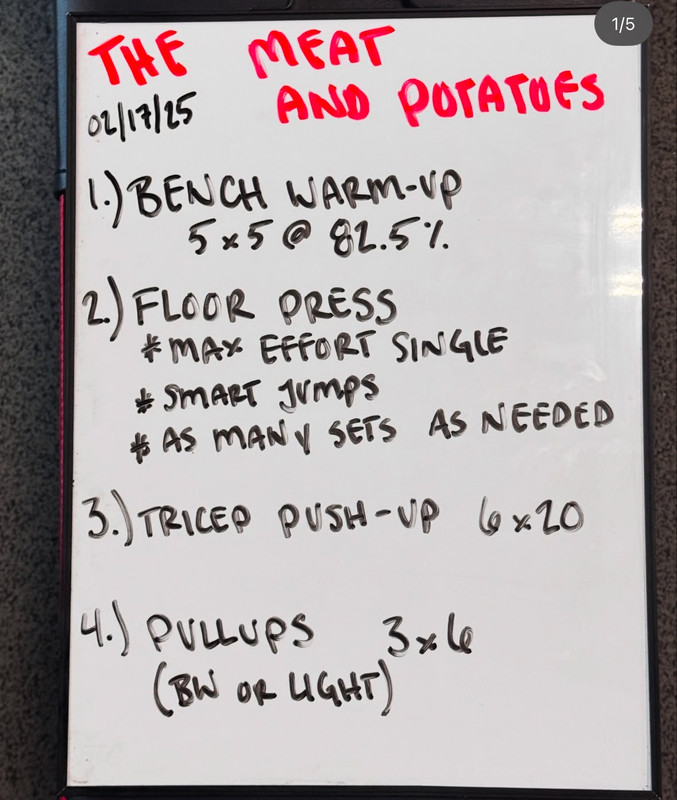 1/5
THE MEAT
AND POTATOES
02/17/25
1.) BENCH WARM-UP
5x5 @ 82.5%
2.) FLOOR PRESS
* MAX EFFORT SINGLE
* SMART JUMPS
* AS MANY SETS AS NEEDED
3.) TRICEP PUSH-UP 6x20
4.) PULLUPS 3x6
(BW OR LIGHT)